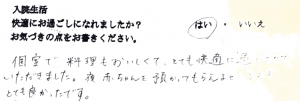 入院生活
快適にお過ごしになれましたか？ はい ・ いいえ
お気づきの点をお書きください。
個室で 料理もおいしくて、とても快適に過
いただきました。夜 赤ちゃんを 預かってもらえ
とても良かったです。